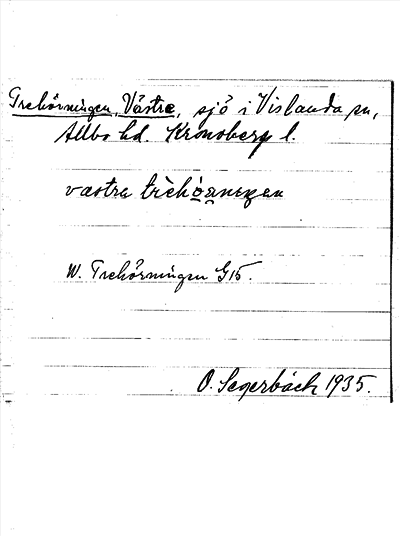 Trehörningen, Västre, sjö i Vislanda sn,
Allbo hd. Kronoberg l.
västra
W. Trehörningen G15.
O. Segerbäck 1935.